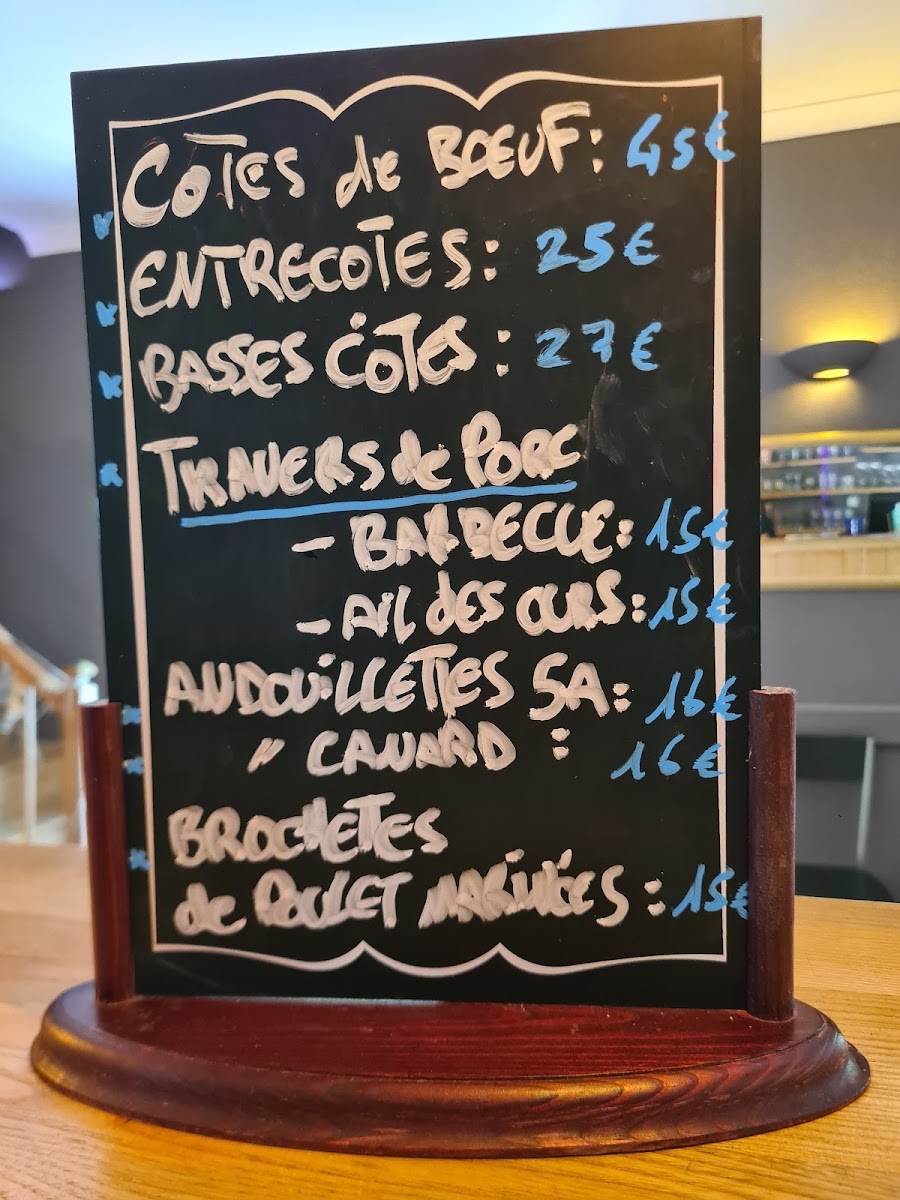 CÔTES de BŒUF: 45€
ENTRECOTES: 25€
BASSES CÔTES: 27€
TRAVERS de PORC
- BARBECUE: 15€
- AIL des OURS: 15€
ANDOUILLETTES 5A: 16€
" CANARD : 16€
BROCHETTES
de POULET MARINÉES : 15€